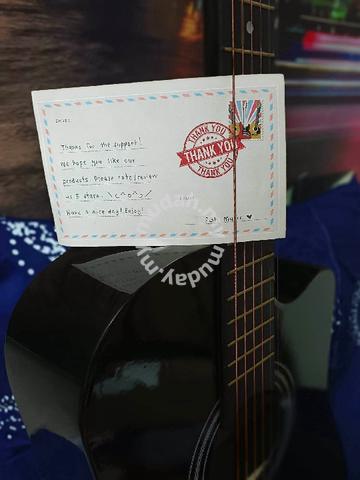 Thanks for the support!
We hope you like our
products. Please rate/review
us 5 stars \(^o^)/
Have a nice day! Enjoy!
THANK YOU
THANK YOU
THANK YOU
mudah.my